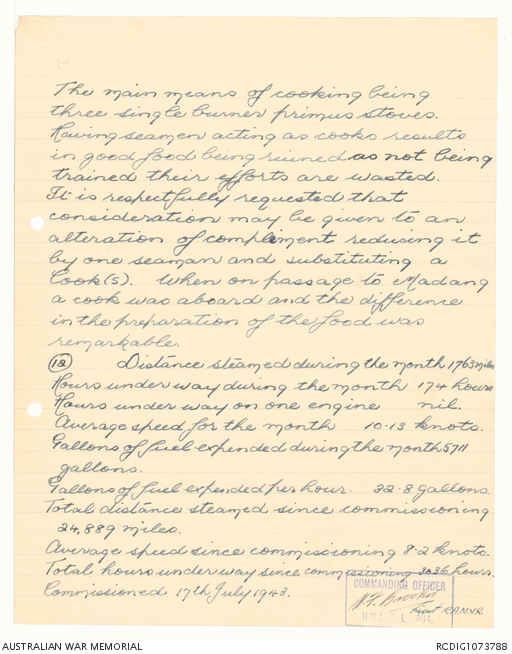 The main means of cooking being
three single burner primus stoves.
Having seamen acting as cooks results
in good food being ruined as not being
trained their efforts are wasted.
It is respectfully requested that
consideration may be given to an
alteration of compliment reducing it
by one seaman and substituting a
Cook(s). When on passage to Madang
a cook was aboard and the difference
in the preparation of the food was
remarkable.
(12) Distance steamed during the month 1763 miles
Hours under way during the month 174 hours
Hours under way on one engine nil.
Average speed for the month 10.13 knots.
Gallons of fuel expended during the month 5711
gallons.
Gallons of fuel expended per hour. 32.8 gallons.
Total distance steamed since commissioning
24,889 miles.
Average speed since commissioning 8.2 knots.
Total hours under way since commissioning 3036 hours.
Commissioned 17th July 1943.
COMMANDING OFFICER
Lieut RANVR
H.M.A. M.L. 814.
AUSTRALIAN WAR MEMORIAL
RCDIG1073788